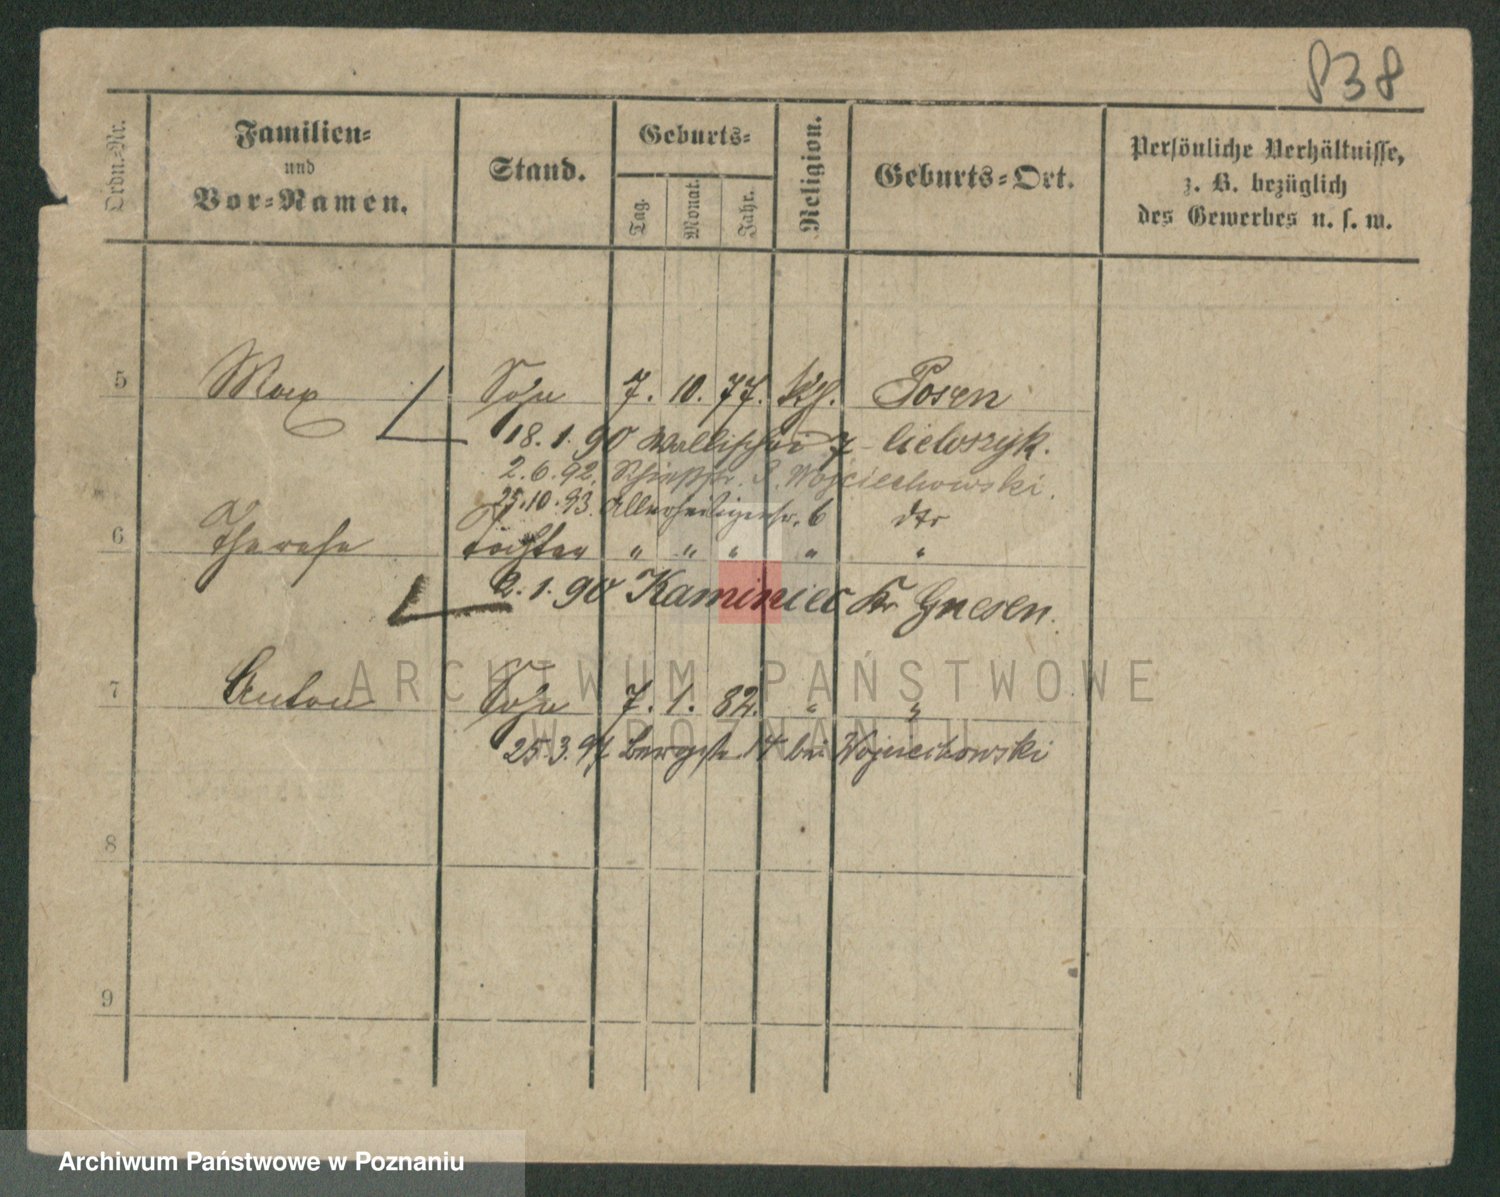 838
Ordn.-Nr.
Familien-
und
Vor-Namen.
Stand.
Geburts-
Tag.
Monat.
Jahr.
Religion.
Geburts-Ort.
Persönliche Verhältnisse,
z. B. bezüglich
des Gewerbes u. s. w.
5 Max Sohn 7. 10. 77. Kth. Posen
18. 1. 90 Wallischei 7
2. 6. 92. Schießstr. Wojciechowski.
25. 10. 93. Allerheiligenstr. 6 dto
6 Therese Tochter " " " " "
2. 1. 90 Kaminiec Kr Gnesen.
7 Anton Sohn 7. 1. 82. " "
25. 3. 97 Bergstr. 14 bei Wojciechowski
8
9
ARCHIWUM PAŃSTWOWE
W POZNANIU
Archiwum Państwowe w Poznaniu